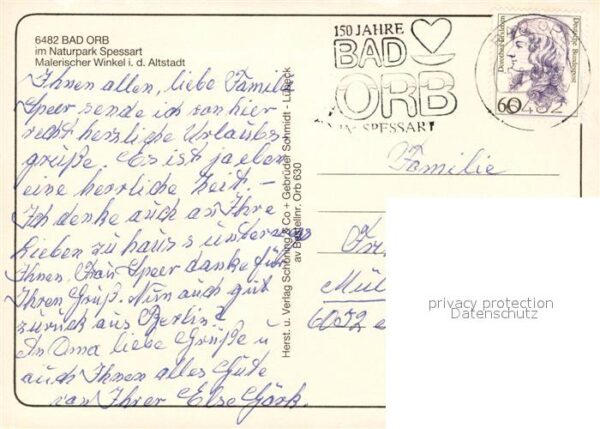 6482 BAD ORB
im Naturpark Spessart
Malerischer Winkel i. d. Altstadt
Ihnen allen, liebe Familie
Speer, sende ich von hier
recht herzliche Urlaubs
grüße. Es ist ja eben
eine herrliche Zeit. –
Ich denke auch an Ihre
Lieben zu haus u unterwegs
Ihnen, Frau Speer danke für
Ihren Gruß. Nun auch gut
zurück aus Berlin?
An Oma liebe Grüße u
auch Ihnen alles Gute
von Ihrer Else Görk.
Herst. u. Verlag Schöning & Co + Gebrüder Schmidt - Lübeck
Bestellnr. Orb 630
150 JAHRE
BAD
ORB
IM SPESSART
Deutsche Bundespost
60
6482
Familie
Mül
privacy protection
Datenschutz